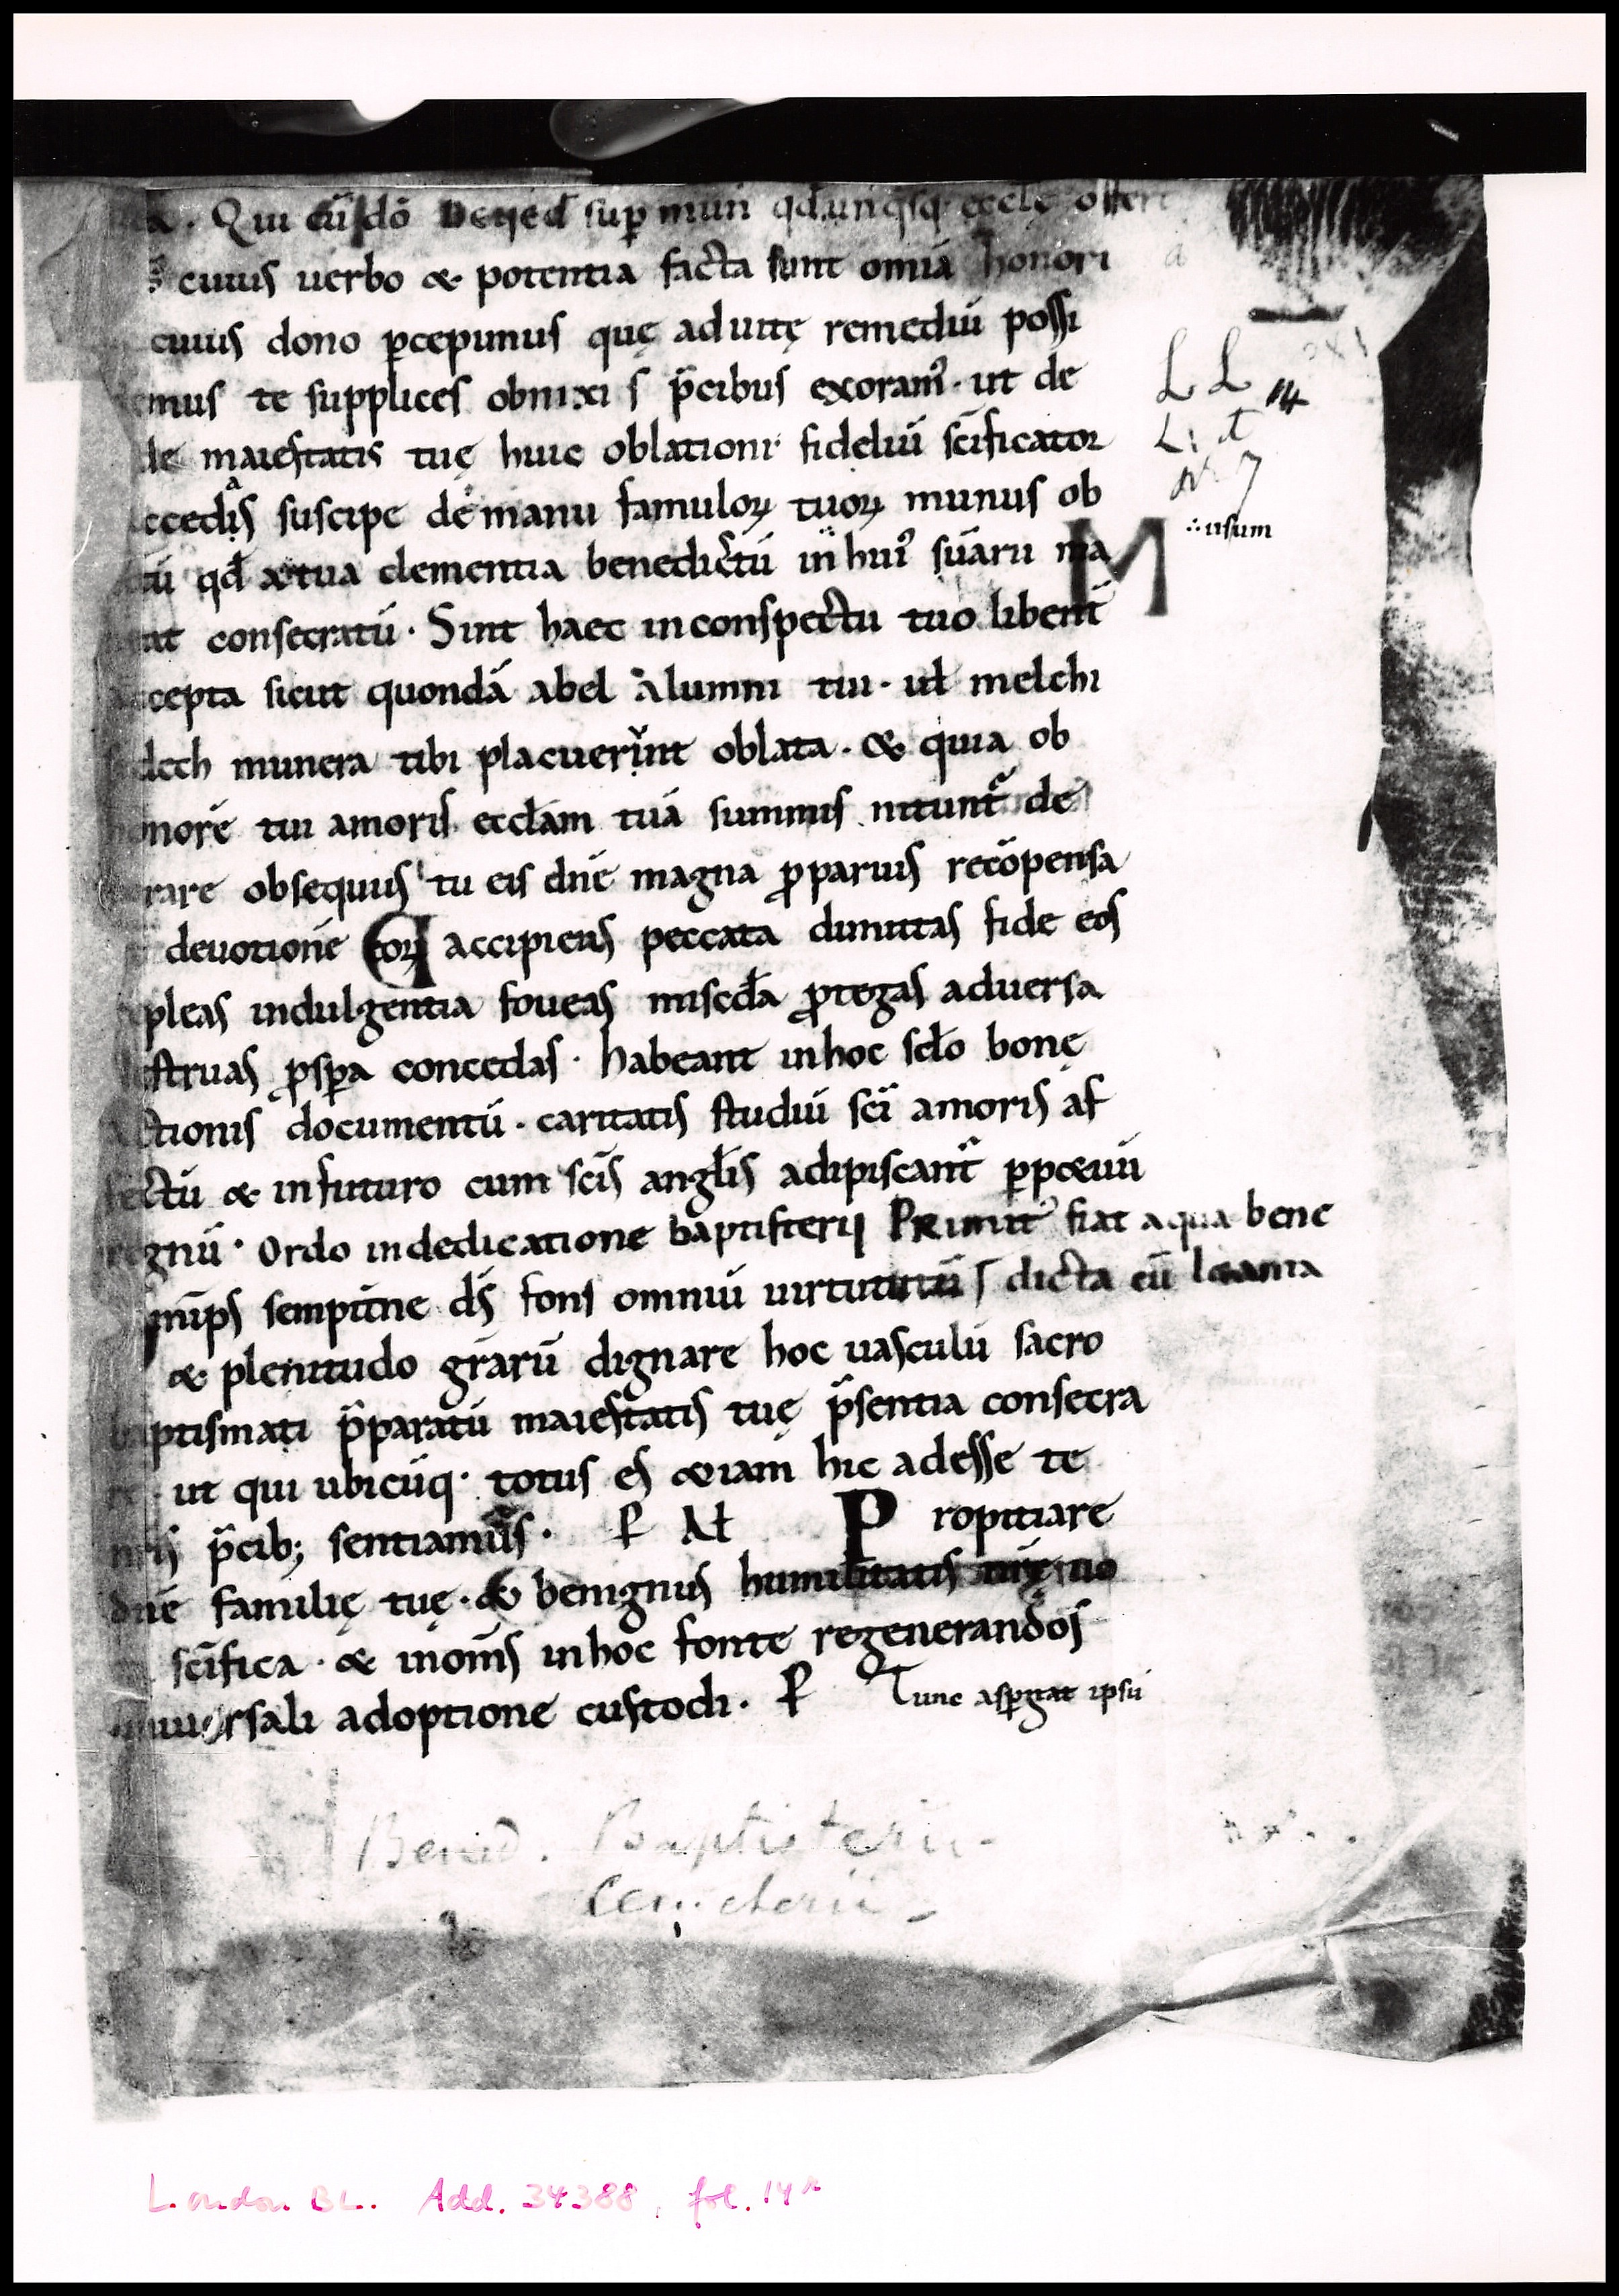 a. Qui cuı̄ſdō Bened̄ sup mun qd unqsq eccle offert
cuius uerbo & potentia facta sunt omia honori
cuius dono pcepimus quę ad uitę remediū possi
mus te supplices obnixi s p̄cibus exoram᾽. ut de
de maiestatis tuę huic oblationi fidelıū sc̄ificator
ccedas suscipe de manu famuloꝝ tuoꝝ munus ob
tū qd̄ & tua clementia benedictū in hui᾽ sūaru ma
∴ usum
at consecratū. Sint haec in conspectu tuo libenti
ccepta sicut quondā abel alumni tui. ut̄ melchi
dech munera tibi placuerunt oblata. & quia ob
honorē tui amoris eccłam tuā summis nitunt᾽ de
rare obsequiis tu eis dn̄e magna ꝓparuis recōpensa
deuotionē eoꝝ accipiens peccata dimittas fide eos
pleas indulgentia foueas misc̄da ꝓtegas aduersa
struas ꝓspa concedas. habeant in hoc scło bonę
actionis documentū. caritatis studiū sc̄i amoris af
fectū & in futuro cum sc̄is angłis adipiscant᾽ ppetuū
regnū. Ordo in dedicatione baptisterii Primit᾽ fiat aqua bene
mnips sempit̄ne ds̄ fons omniū uirtutū dicta cū letania
& plenitudo grārū dignare hoc uasculū sacro
baptismati p̄paratū maiestatis tuę p̄sentia consecra
ut qui ubicūq. totus es etiam hic adesse te
nr̄is p̄cib; sentiamus. P Ał Propitiare
dn̄e familię tuę. & benignus humilitatis
sc̄ifica. & inom̄s in hoc fonte regenerandos
uniuersali adoptione custodi. P Tunc aspgat ipsū
LL 14
Bened. Baptisterii -
Cemeterii -
London BL. Add. 34388, fol. 14r